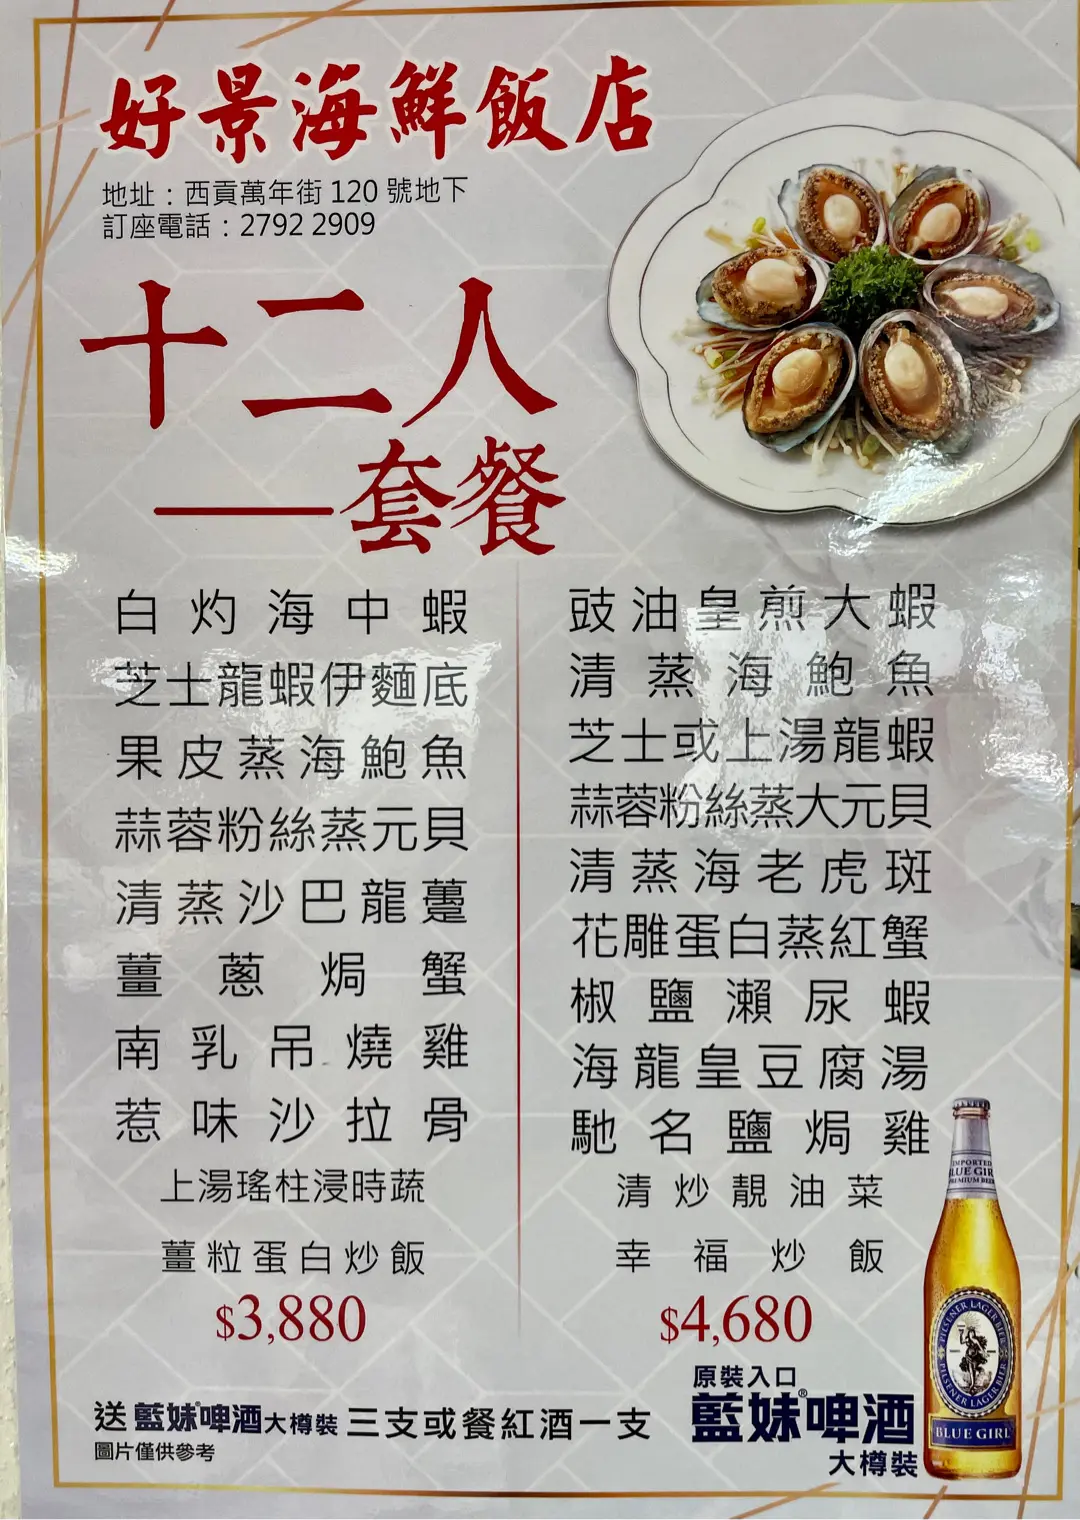 好景海鮮飯店
地址：西貢萬年街 120 號地下
訂座電話：2792 2909
十二人
套餐
白灼海中蝦
芝士龍蝦伊麵底
果皮蒸海鮑魚
蒜蓉粉絲蒸元貝
清蒸沙巴龍躉
薑蔥焗蟹
南乳吊燒雞
惹味沙拉骨
上湯瑤柱浸時蔬
薑粒蛋白炒飯
$3,880
豉油皇煎大蝦
清蒸海鮑魚
芝士或上湯龍蝦
蒜蓉粉絲蒸大元貝
清蒸海老虎斑
花雕蛋白蒸紅蟹
椒鹽瀨尿蝦
海龍皇豆腐湯
馳名鹽焗雞
清炒靚油菜
幸福炒飯
$4,680
送 藍妹啤酒大樽裝 三支或餐紅酒一支
圖片僅供參考
原裝入口
藍妹®啤酒
大樽裝
IMPORTED
BLUE GIRL
PREMIUM BEER
PILSENER LAGER BIER
PILSENER LAGER BIER
BLUE GIRL